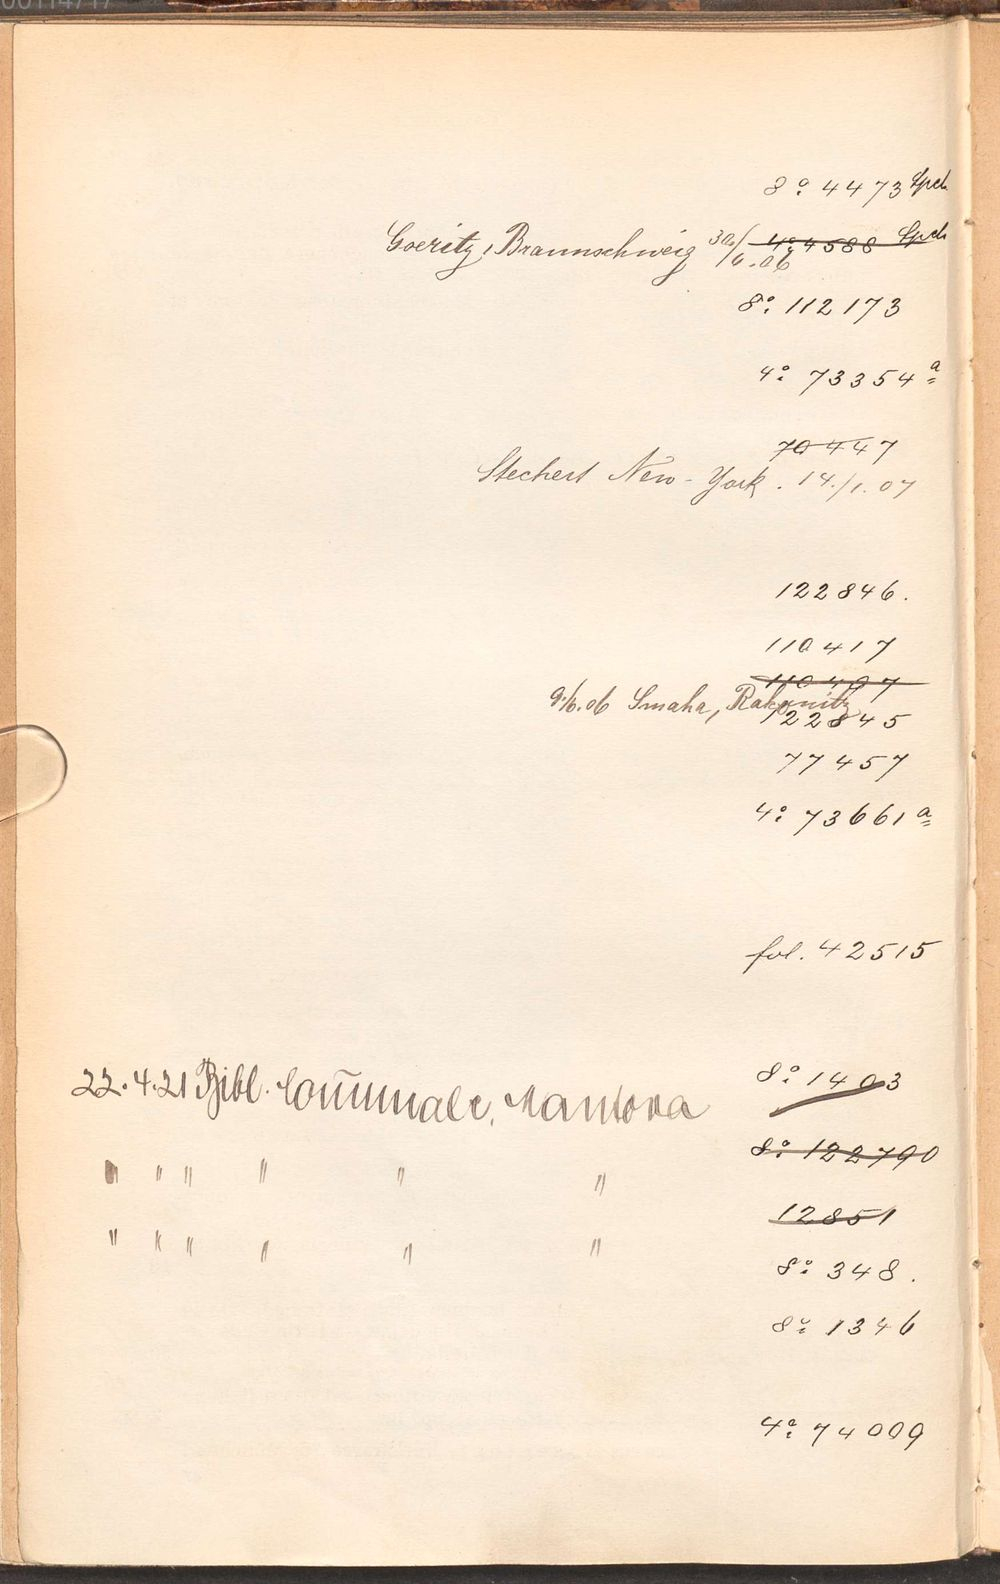 00114717
8° 4473 Spch
Goeritz, Braunschweig 30/6.06 4° 4588 Spch
8° 112173
4° 73354 a
70447
Stechert New-York. 14./1.07
122846.
110417
110497
9./6.06 Smaha, Rakonitz
122845
77457
4° 73661 a
fol. 42515
22.4.21 Bibl. Comunale, Mantova 8° 1403
" " " " " " 8° 122790
" " " " " " 12851
8° 348.
8° 1346
4° 74009